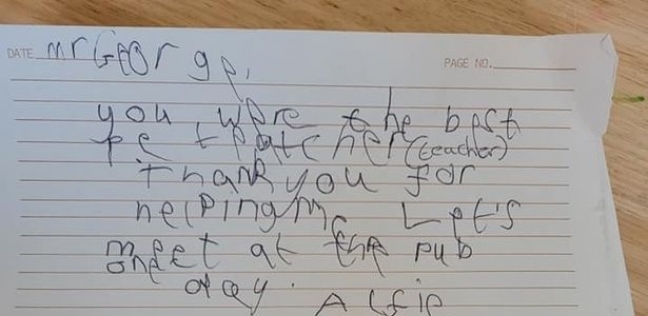 DATE Mr George,
PAGE NO.
you were the best
pe teatcher (teacher)
Thank you for
helping me Let's
meet at the pub
one day. Alfie